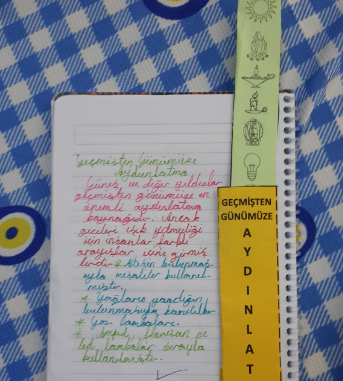 Geçmişten Günümüze
Aydınlatma
Güneş ve diğer yıldızlar
geçmişten günümüze en
önemli aydınlatma
kaynağıdır. Ancak
geceleri ışık yetmediği
için insanlar farklı
arayışlar içine girmiş
lerdir. * Ateşin bulunması
yla meşaleler kullanıl
mıştır.
* Yağların yandığın
bulunmasıyla kandiller
* Gaz lambaları.
* Ampul, floresan ve
led lambalar sırayla
kullanılmıştır.
GEÇMİŞTEN
GÜNÜMÜZE
A
Y
D
I
N
L
A
T